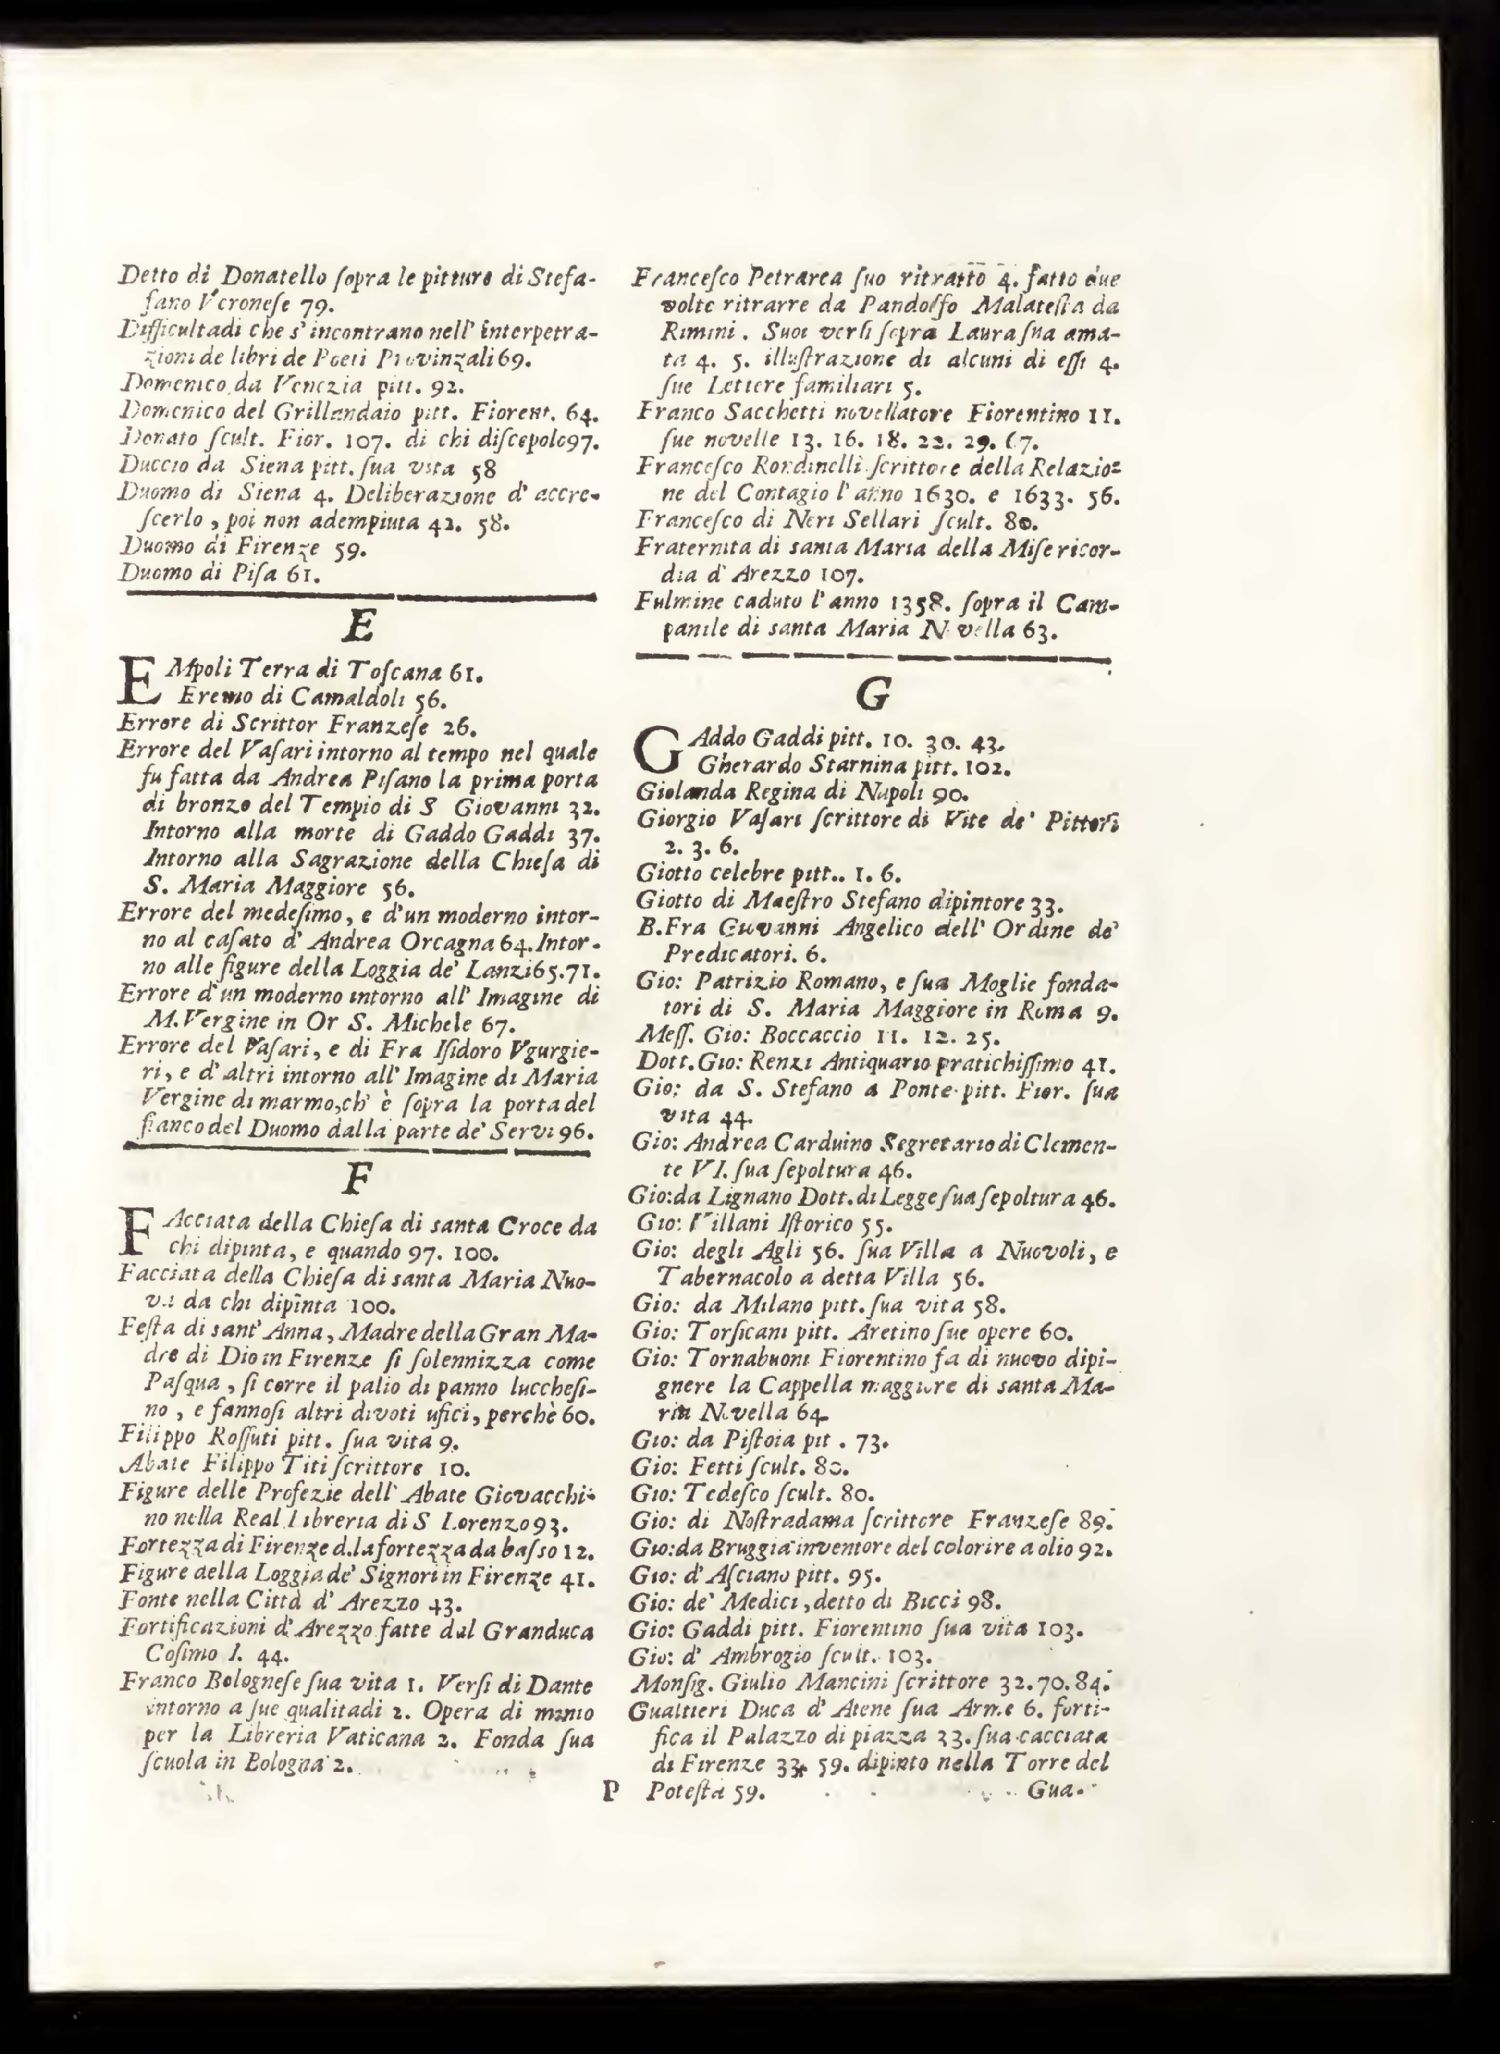 Detto di Donatello ſopra le pitture di Stefa-
fano Veroneſe 79.
Difficultadi che s' incontrano nell' interpetra-
zioni de libri de Poeti Provinzali 69.
Domenico da Venezia pitt. 92.
Domenico del Grillandaio pitt. Fiorent. 64.
Donato ſcult. Fior. 107. di chi diſcepolo 97.
Duccio da Siena pitt. ſua vita 58
Duomo di Siena 4. Deliberazione d' accre-
ſcerlo, poi non adempiuta 42. 58.
Duomo di Firenze 59.
Duomo di Piſa 61.
E
EMpoli Terra di Toſcana 61.
Eremo di Camaldoli 56.
Errore di Scrittor Franzeſe 26.
Errore del Vaſari intorno al tempo nel quale
fu fatta da Andrea Piſano la prima porta
di bronzo del Tempio di S Giovanni 32.
Intorno alla morte di Gaddo Gaddi 37.
Intorno alla Sagrazione della Chieſa di
S. Maria Maggiore 56.
Errore del medeſimo, e d'un moderno intor-
no al caſato d' Andrea Orcagna 64. Intor-
no alle figure della Loggia de' Lanzi 65. 71.
Errore d'un moderno intorno all' Imagine di
M. Vergine in Or S. Michele 67.
Errore del Vaſari, e di Fra Iſidoro Vgurgie-
ri, e d' altri intorno all' Imagine di Maria
Vergine di marmo, ch' è ſopra la porta del
fianco del Duomo dalla parte de' Servi 96.
F
FAcciata della Chieſa di santa Croce da
chi dipinta, e quando 97. 100.
Facciata della Chieſa di santa Maria Nuo-
va da chi dipinta 100.
Feſta di sant' Anna, Madre della Gran Ma-
dre di Dio in Firenze ſi ſolennizza come
Paſqua, ſi corre il palio di panno luccheſi-
no, e fannoſi altri divoti ufici, perchè 60.
Filippo Roſſuti pitt. ſua vita 9.
Abate Filippo Titi ſcrittore 10.
Figure delle Profezie dell' Abate Giovacchi-
no nella Real Libreria di S Lorenzo 93.
Fortezza di Firenze d. la fortezza da baſſo 12.
Figure della Loggia de' Signori in Firenze 41.
Fonte nella Città d' Arezzo 43.
Fortificazioni d' Arezzo fatte dal Granduca
Coſimo I. 44.
Franco Bologneſe ſua vita 1. Verſi di Dante
intorno a ſue qualitadi 2. Opera di minio
per la Libreria Vaticana 2. Fonda ſua
ſcuola in Bologna 2.
Franceſco Petrarca ſuo ritratto 4. fatto due
volte ritrarre da Pandolfo Malateſta da
Rimini. Suoi verſi ſopra Laura ſua ama-
ta 4. 5. illuſtrazione di alcuni di eſſi 4.
ſue Lettere familiari 5.
Franco Sacchetti novellatore Fiorentino 11.
ſue novelle 13. 16. 18. 22. 29. 67.
Franceſco Rondinelli ſcrittore della Relazio-
ne del Contagio l' anno 1630. e 1633. 56.
Franceſco di Neri Sellari ſcult. 80.
Fraternita di santa Maria della Miſericor-
dia d' Arezzo 107.
Fulmine caduto l' anno 1358. ſopra il Cam-
panile di santa Maria Novella 63.
G
GAddo Gaddi pitt. 10. 30. 43.
Gherardo Starnina pitt. 102.
Giolanda Regina di Napoli 90.
Giorgio Vaſari ſcrittore di Vite de' Pittori
2. 3. 6.
Giotto celebre pitt.. 1. 6.
Giotto di Maeſtro Stefano dipintore 33.
B. Fra Giovanni Angelico dell' Ordine de'
Predicatori. 6.
Gio: Patrizio Romano, e ſua Moglie fonda-
tori di S. Maria Maggiore in Roma 9.
Meſſ. Gio: Boccaccio 11. 12. 25.
Dott. Gio: Renzi Antiquario pratichiſſimo 41.
Gio: da S. Stefano a Ponte pitt. Fior. ſua
vita 44.
Gio: Andrea Carduino Segretario di Clemen-
te VI. ſua ſepoltura 46.
Gio: da Lignano Dott. di Legge ſua ſepoltura 46.
Gio: Villani Iſtorico 55.
Gio: degli Agli 56. ſua Villa a Nuovoli, e
Tabernacolo a detta Villa 56.
Gio: da Milano pitt. ſua vita 58.
Gio: Torſicani pitt. Aretino ſue opere 60.
Gio: Tornabuoni Fiorentino fa di nuovo dipi-
gnere la Cappella maggiore di santa Ma-
ria Novella 64.
Gio: da Piſtoia pit . 73.
Gio: Fetti ſcult. 80.
Gio: Tedeſco ſcult. 80.
Gio: di Noſtradama ſcrittore Franzeſe 89.
Gio: da Bruggia inventore del colorire a olio 92.
Gio: d' Aſciano pitt. 95.
Gio: de' Medici, detto di Bicci 98.
Gio: Gaddi pitt. Fiorentino ſua vita 103.
Gio: d' Ambrogio ſcult. 103.
Monſig. Giulio Mancini ſcrittore 32. 70. 84.
Gualtieri Duca d' Atene ſua Arme 6. forti-
fica il Palazzo di piazza 33. ſua cacciata
di Firenze 33. 59. dipinto nella Torre del
P Poteſtà 59. Gua-